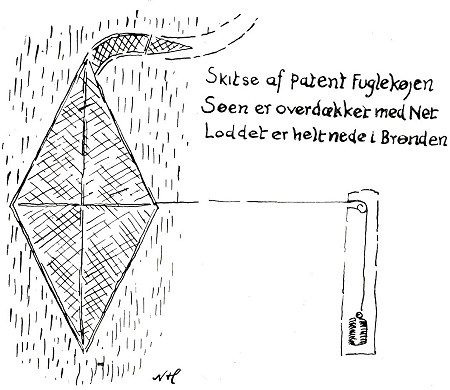 Skitse af Patent Fuglekøjen
Søen er overdækker med Net
Loddet er helt nede i Brønden
NH